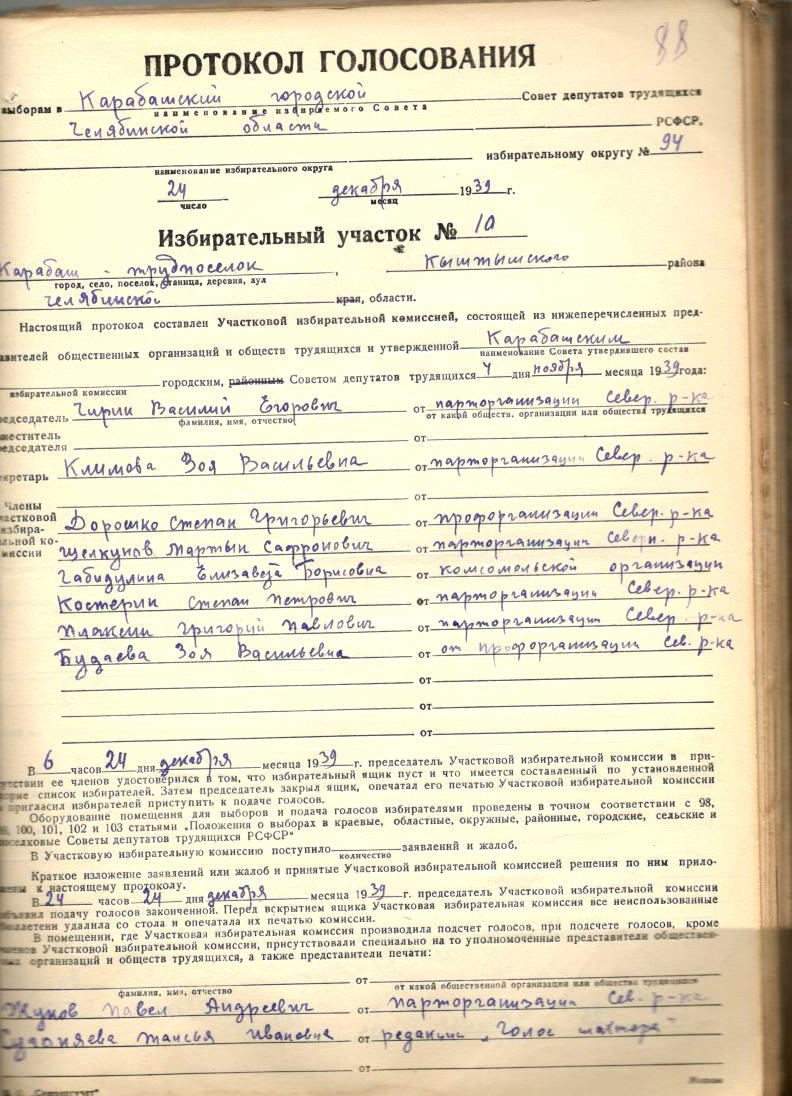 88
ПРОТОКОЛ ГОЛОСОВАНИЯ
выборам в Карабашский городской Совет депутатов трудящихся
наименование избираемого Совета
Челябинской области РСФСР,
избирательному округу № 94
наименование избирательного округа
24 декабря 1939 г.
число месяц
Избирательный участок № 10
Карабаш - трудпоселок, Кыштымского района
город, село, поселок, станица, деревня, аул
Челябинской края, области.
Настоящий протокол составлен Участковой избирательной комиссией, состоящей из нижеперечисленных пред-
авителей общественных организаций и обществ трудящихся и утвержденной Карабашским
наименование Совета утвердившего состав
городским, районным Советом депутатов трудящихся 4 дня ноября месяца 1939 года:
избирательной комиссии
редседатель Чирин Василий Егорович от парторганизации Север. р-ка
фамилия, имя, отчество от какой обществ. организации или общества трудящихся
меститель
редседателя от
екретарь Климова Зоя Васильевна от парторганизации Север. р-ка
от
Члены
частковой
избира-
льной ко-
миссии
Дорошко Степан Григорьевич от профорганизации Север. р-ка
Щелкунов Мартын Сафронович от парторганизации Северн. р-ка
Габидулина Елизавета Борисовна от комсомольской организации
Костерин Степан Петрович от парторганизации Север. р-ка
Плаксин Григорий Павлович от парторганизации Север. р-ка
Будаева Зоя Васильевна от от профорганизации Сев. р-ка
от
от
от
В 6 часов 24 дня декабря месяца 1939 г. председатель Участковой избирательной комиссии в при-
утствии ее членов удостоверился в том, что избирательный ящик пуст и что имеется составленный по установленной
орме список избирателей. Затем председатель закрыл ящик, опечатал его печатью Участковой избирательной комиссии
и пригласил избирателей приступить к подаче голосов.
Оборудование помещения для выборов и подача голосов избирателями проведены в точном соответствии с 98,
100, 101, 102 и 103 статьями „Положения о выборах в краевые, областные, окружные, районные, городские, сельские и
оселковые Советы депутатов трудящихся РСФСР“
В Участковую избирательную комиссию поступило заявлений и жалоб.
количество
Краткое изложение заявлений или жалоб и принятые Участковой избирательной комиссией решения по ним прило-
жены к настоящему протоколу.
В 24 часов 24 дня декабря месяца 1939 г. председатель Участковой избирательной комиссии
объявил подачу голосов законченной. Перед вскрытием ящика Участковая избирательная комиссия все неиспользованные
бюллетени удалила со стола и опечатала их печатью комиссии.
В помещении, где Участковая избирательная комиссия производила подсчет голосов, при подсчете голосов, кроме
членов Участковой избирательной комиссии, присутствовали специально на то уполномоченные представители обществен-
ных организаций и обществ трудящихся, а также представители печати:
от
фамилия, имя, отчество от какой общественной организации или общества трудящихся
Жуков Павел Андреевич от парторганизации Сев. р-ка
Таисья Ивановна от редакции „Голос шахтера“
от